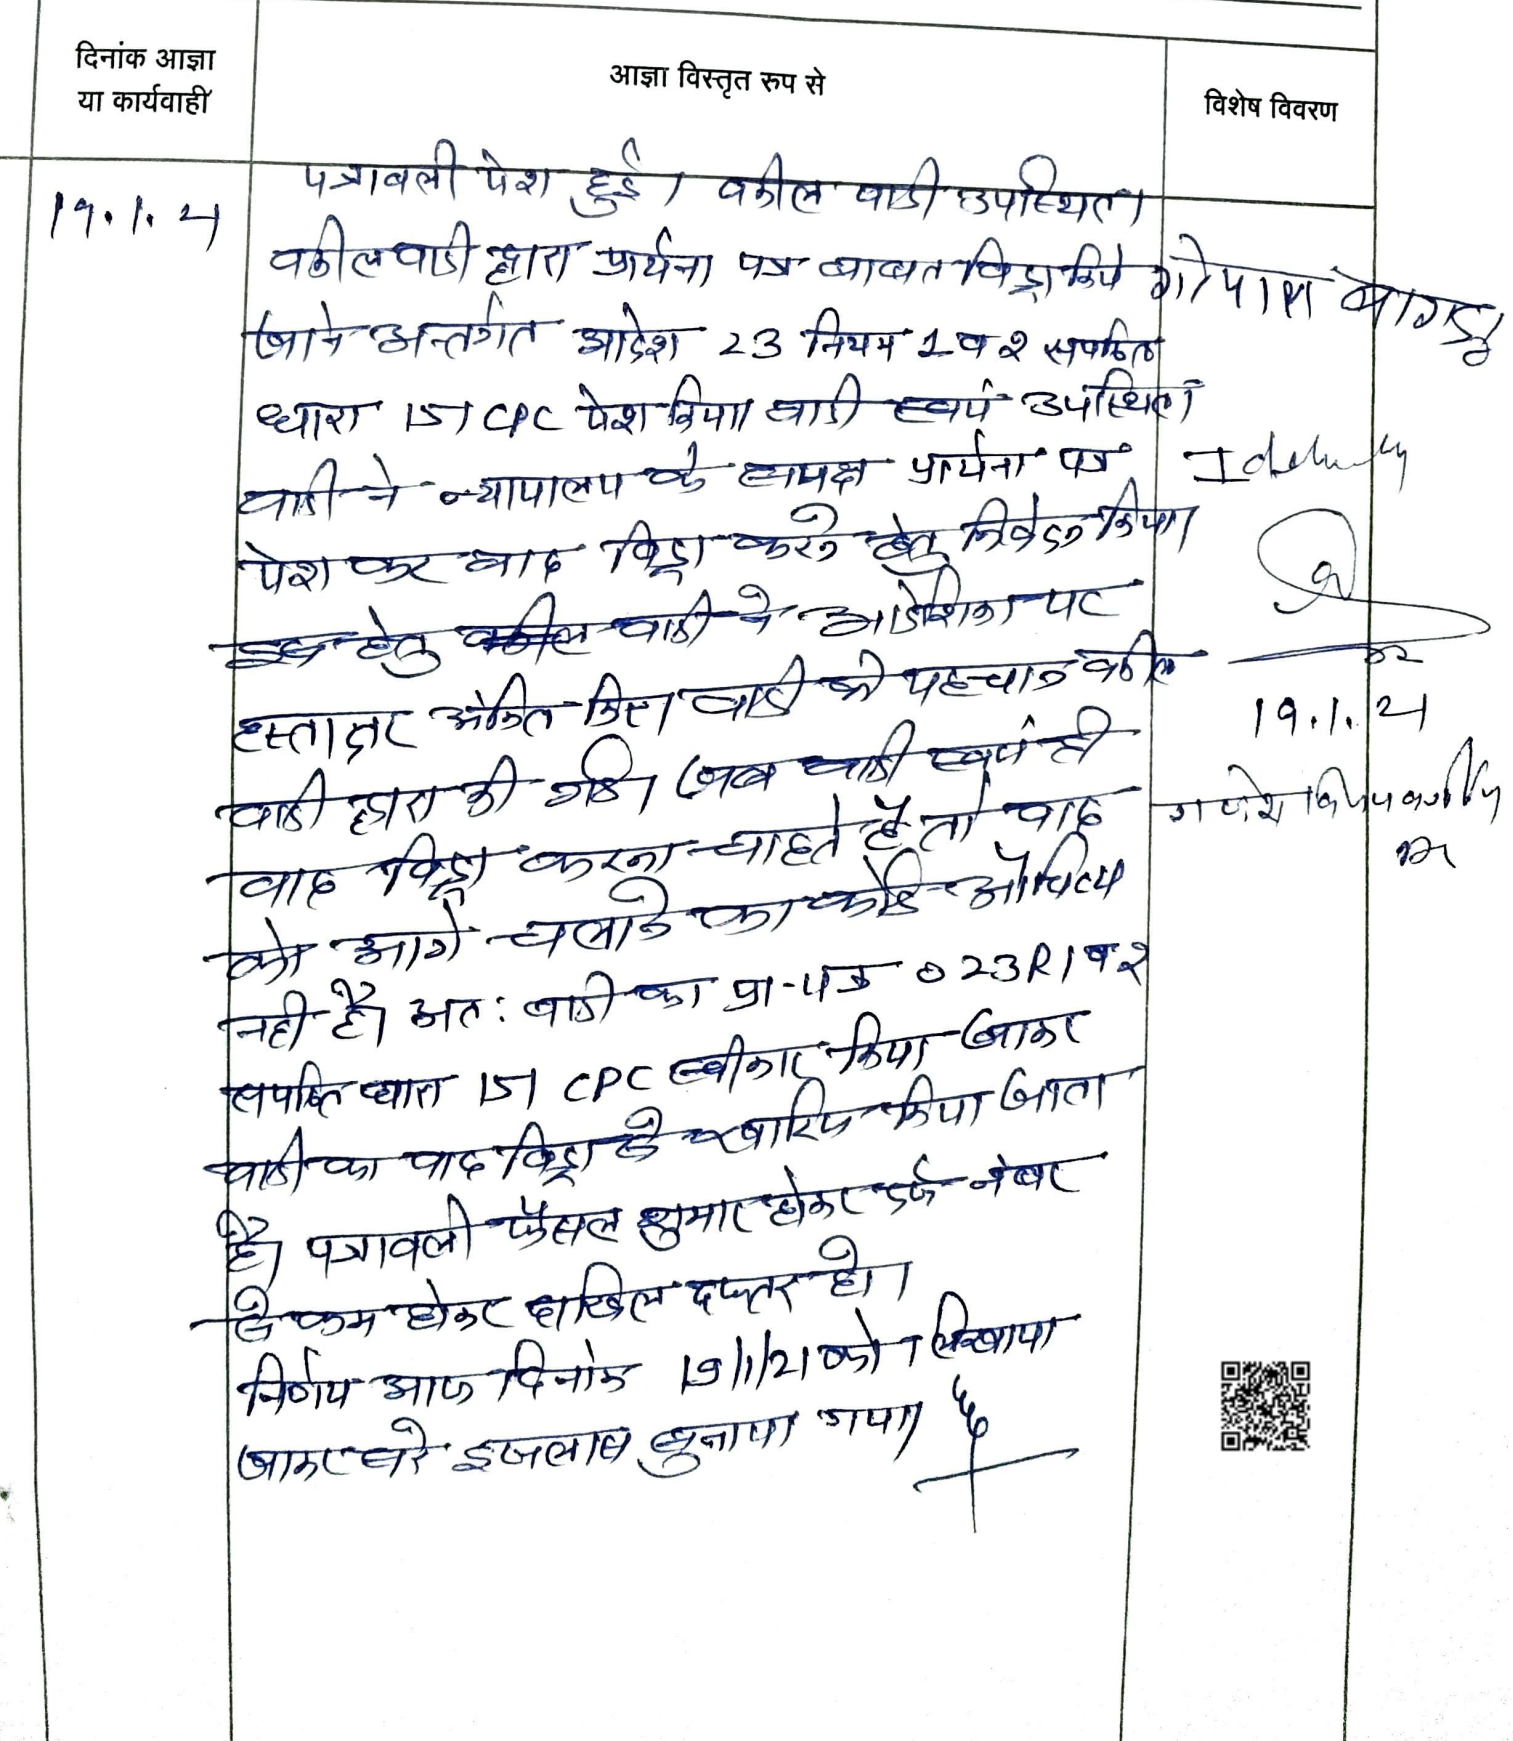 दिनांक आज्ञा
या कार्यवाही
आज्ञा विस्तृत रुप से
विशेष विवरण
19.1.21
पत्रावली पेश हुई। वकील वादी उपस्थित।
वकील वादी द्वारा प्रार्थना पत्र बाबत विड्रा किये
जाने अन्तर्गत आदेश 23 नियम 1 व 2 सपठित
धारा 151 CPC पेश किया। वादी स्वयं उपस्थित।
वादी ने न्यायालय के समक्ष प्रार्थना पत्र
पेश कर वाद विड्रा करने हेतु निवेदन किया।
इस हेतु वादी ने आदेशिका पर
हस्ताक्षर अंकित किए। वादी की पहचान वकील
वादी द्वारा की गई। जब वादी स्वयं ही
वाद विड्रा करना चाहते है तो वाद
को आगे चलाने का कोई औचित्य
नही है। अत: वादी का प्रा-पत्र O 23 R 1 व 2
सपठित धारा 151 CPC स्वीकार किया जाकर
वादी का वाद विड्रा में खारिज किया जाता
है। पत्रावली फैसल शुमार होकर दर्ज नंबर
से कम होकर दाखिल दफ्तर हो।
निर्णय आज दिनांक 19/1/21 को लिखाया
जाकर सरे इजलास सुनाया गया।
गोपाल बागडा
19.1.21
गणेश